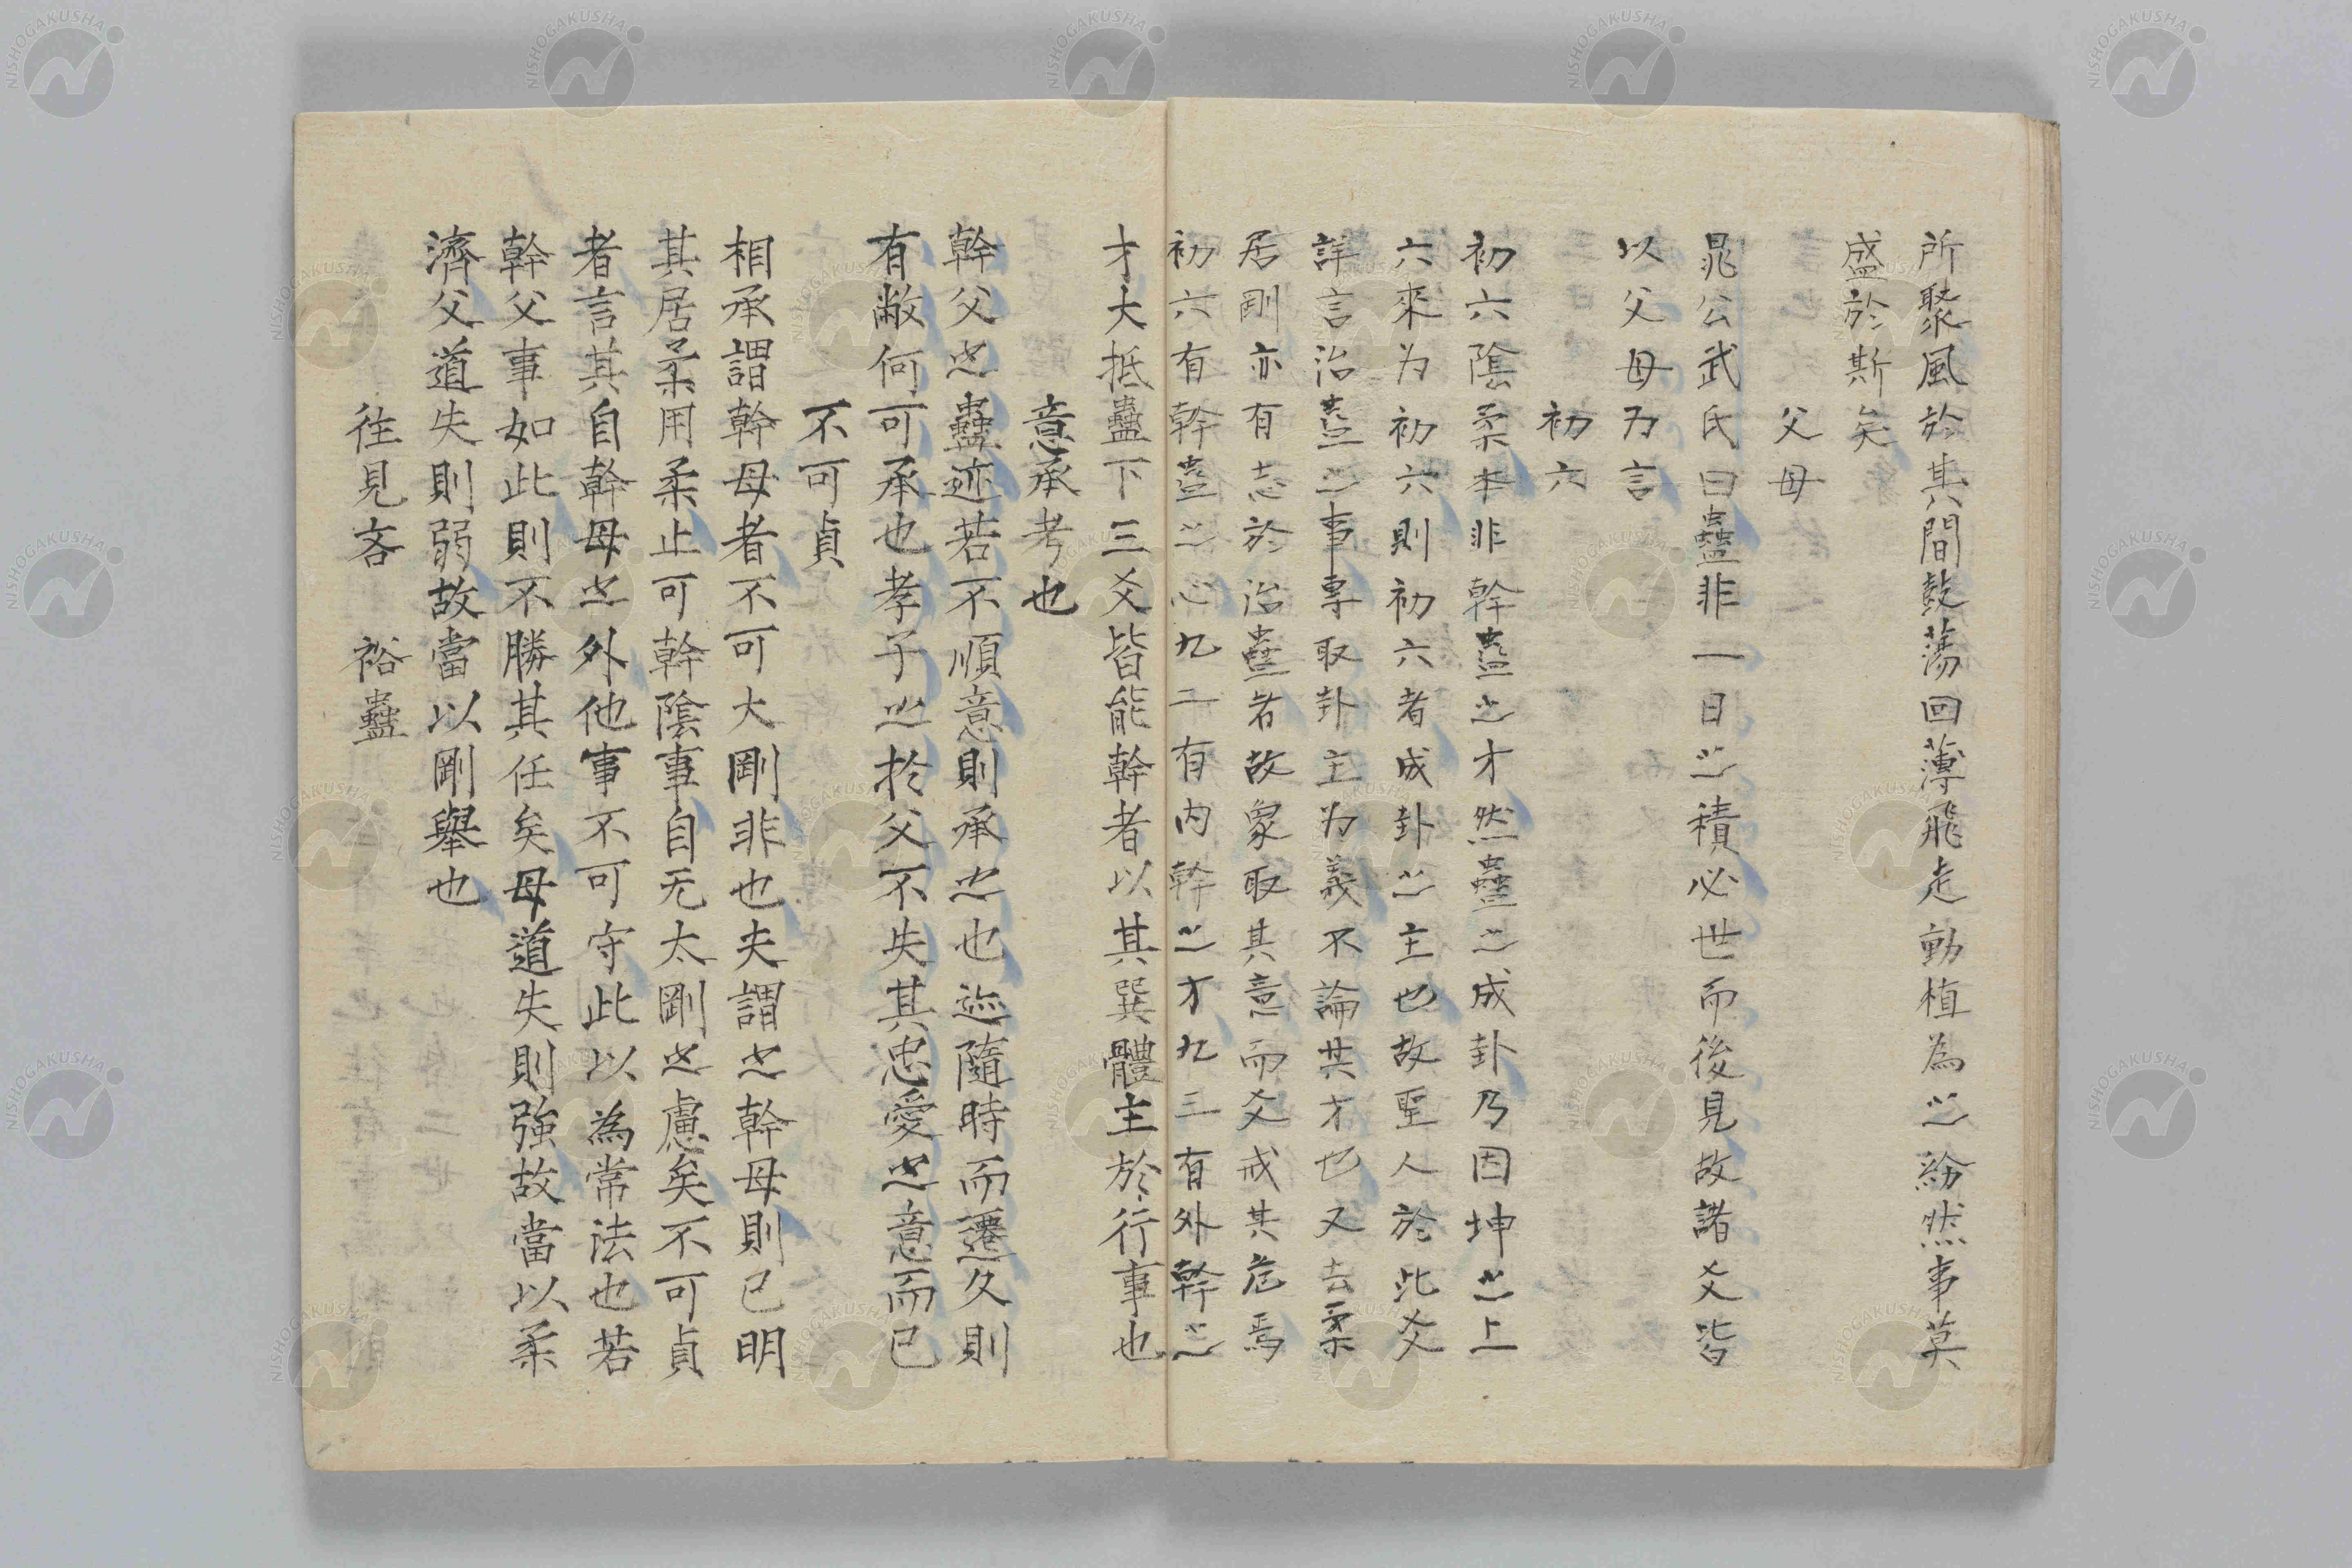 所聚風於其間鼓蕩回薄飛走動植為之紛然事莫
盛於斯矣
父母
晁公武氏曰蠱非一日之積必世而後見故諸爻皆
以父母为言
初六
初六陰柔本非幹蠱之才然蠱之成卦乃因坤之上
六來为初六則初六者成卦之主也故聖人於此爻
詳言治蠱之事專取卦主为義不論其才也又云柔
居剛亦有志於治蠱者故象取其意而爻戒其危焉
初六有幹蠱之心九二有内幹之才九三有外幹之
才大抵蠱下三爻皆能幹者以其巽體主於行事也
意承考也
幹父之蠱迹若不順意則承之也迹隨時而遷久則
有敝何可承也孝子之於父不失其忠愛之意而已
不可貞
相承謂幹母者不可大剛非也夫謂之幹母則已明
其居柔用柔止可幹陰事自无太剛之慮矣不可貞
者言其自幹母之外他事不可守此以為常法也若
幹父事如此則不勝其任矣母道失則強故當以柔
濟父道失則弱故當以剛舉也
往見吝 裕蠱
NISHOGAKUSHA